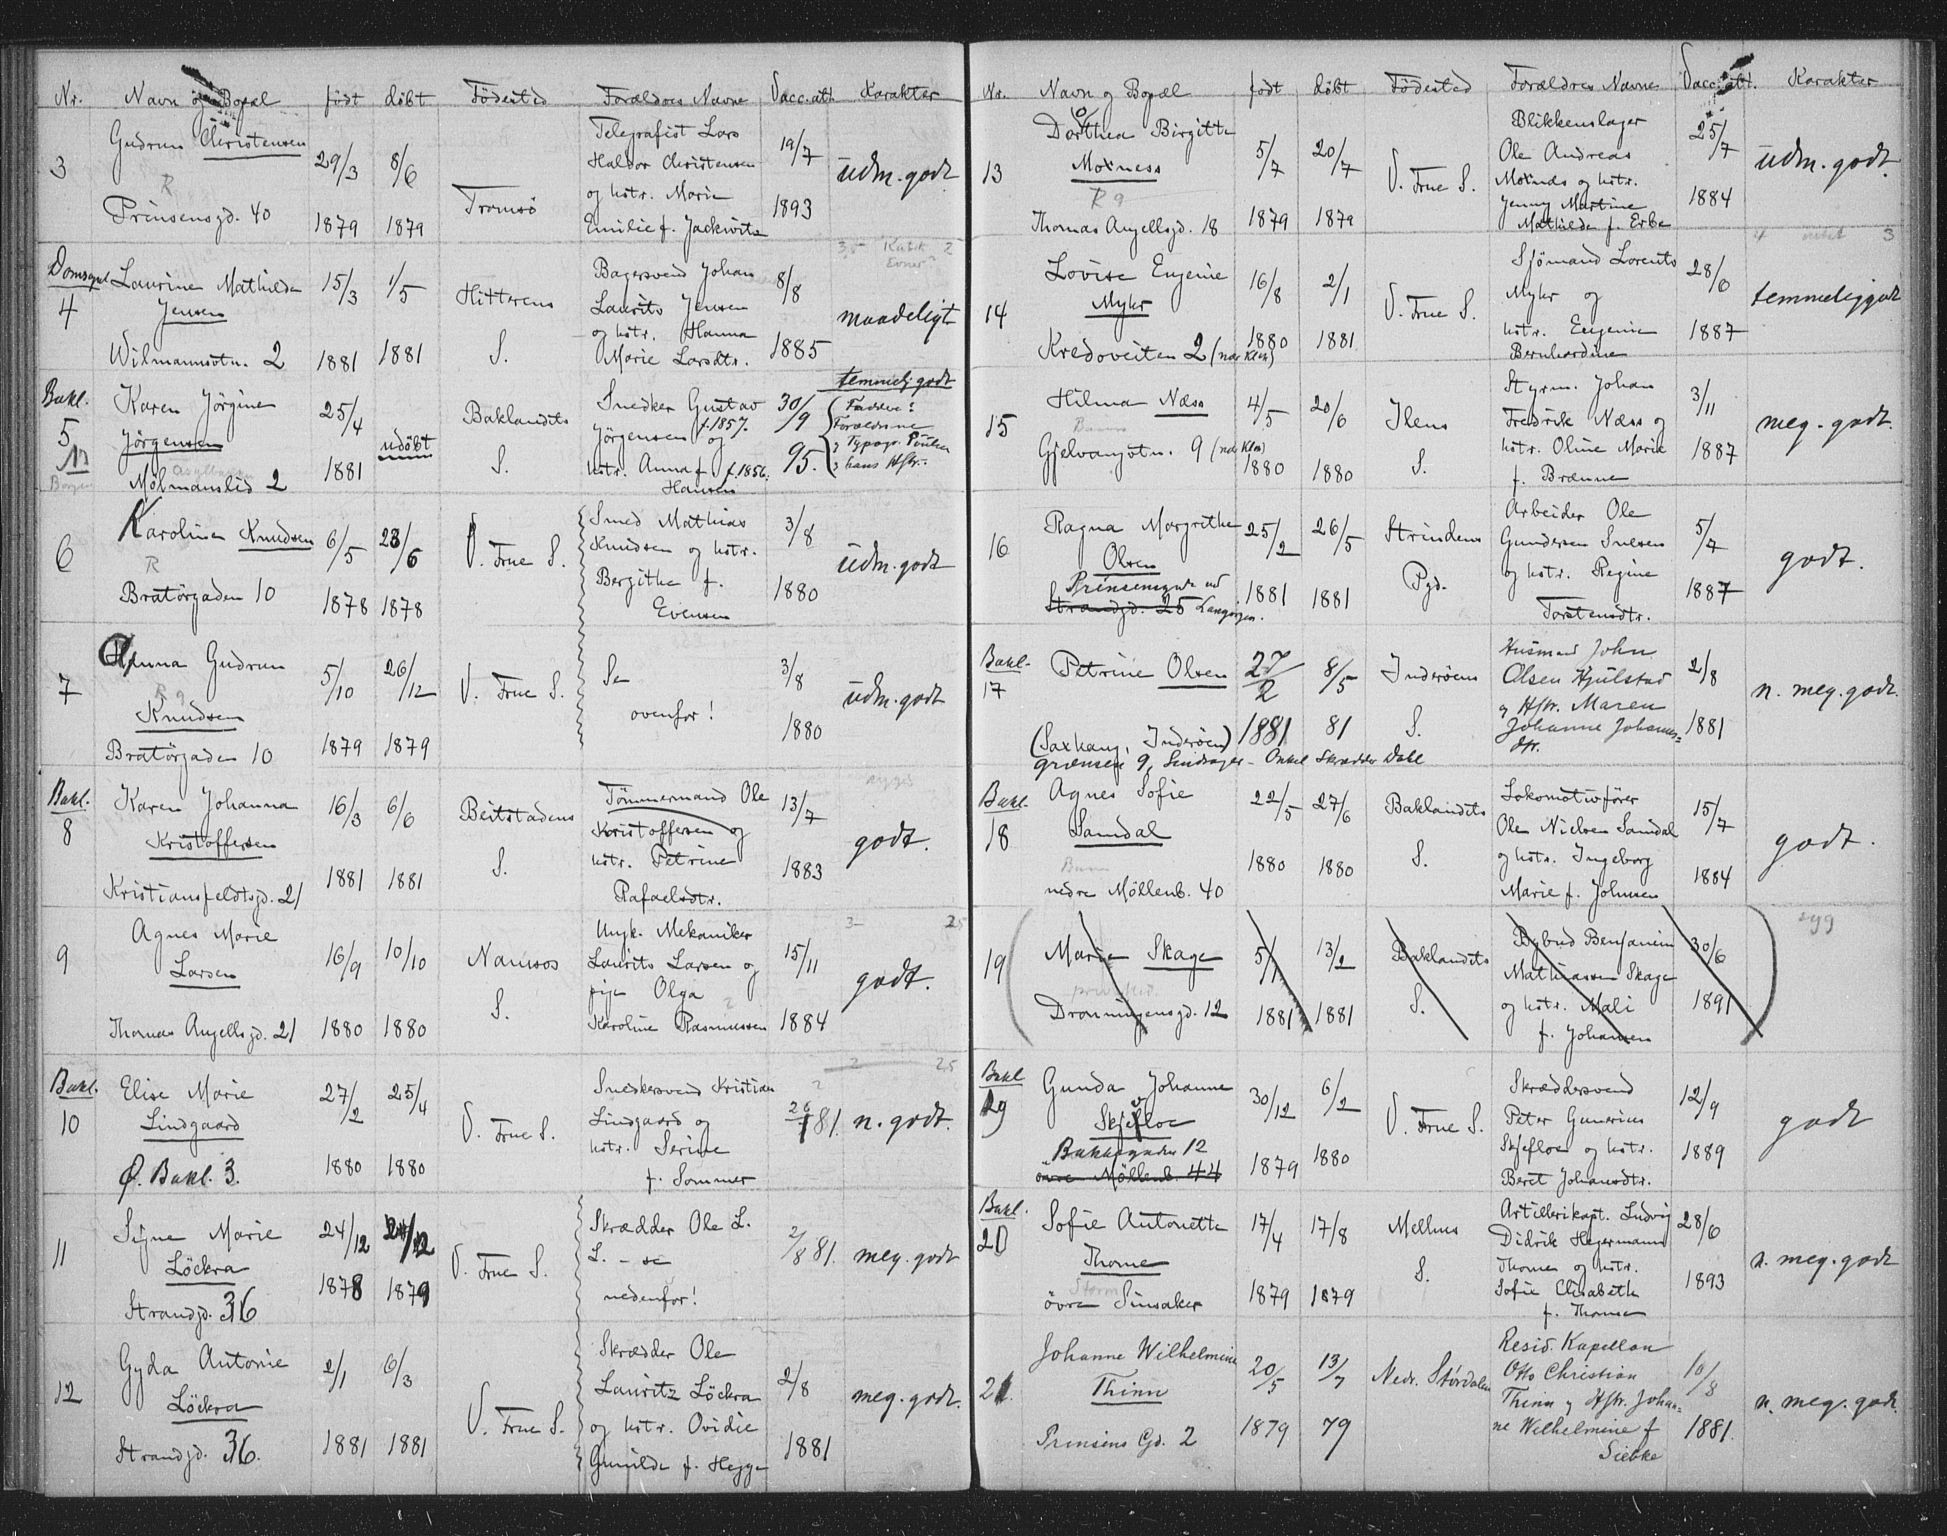 Nr. Navn og Bopæl født døbt Fødested Forældres Navne Vacc.att. Karakter
3
Gudrun Christensen
R
Prinsensgd. 40
29/3
1879
8/6
1879
Tromsø
Telegrafist Lars
Haldor Christensen
og hstr. Marie
Emilie f. Jackwitz
19/7
1893
udm. godt
Domsogn
4
Laurine Mathilde
Jensen
Wilmannsvtn. 2
15/3
1881
1/5
1881
Hitterens
S.
Bagersvend Johan
Laurits Jensen
og hstr. Hanna
Marie Larsdtr.
8/8
1885
maadeligt
Bakl.
5
Karen Jörgine
Jörgensen
Molmanslid 2
25/4
1881
udöbt
Baklandets
S.
Snedker Gustav
Jörgensen f.1857. og
hstr. Anna f. f.1856.
Hansen
30/9
95.
temmelig godt
Faddere:
Forældrene
hans Hstr.
6
Karoline Knudsen
R
Bratörgaden 10
6/5
1878
23/6
1878
V. Frue S.
Smed Mathias
Knudsen og hstr.
Bergithe f.
Evensen
3/8
1880
udm. godt
7
Anna Gudrun
R 9
Knudsen
Bratörgaden 10
5/10
1879
26/12
1879
V. Frue S.
Se
ovenfor!
3/8
1880
udm. godt
Bakl.
8
Karen Johanna
Kristoffersen
Kristiansfeldtsgd. 21
16/3
1881
6/6
1881
Beitstadens
S.
Tömmermand Ole
Kristoffersen og
hstr. Petrine
Rafaelsdtr.
13/7
1883
godt.
9
Agnes Marie
Larsen
Thomas Angellsgd. 21
16/9
1880
10/10
1880
Namsos
S.
Ungk. Mekaniker
Laurits Larsen og
pige Olga
Karoline Rasmussen
15/11
1884
godt.
Bakl.
10
Elise Marie
Lindgaard
Ø. Bakl. 3.
27/2
1880
25/4
1880
V. Frue S.
Snedkersvend Kristian
Lindgaard og
hstr. Serine
f. Sommer
81.
n. godt.
11
Signe Marie
Löckra
Strandgd. 36
24/12
1878
24/12
1879
V. Frue S.
Skrædder Ole L.
L. – se
nedenfor!
2/8 81.
meg. godt
12
Gyda Antonie
Löckra
Strandgd. 36.
2/1
1881
6/3
1881
V. Frue S.
Skrædder Ole
Lauritz Löckra
og hstr. Ovidie
Gunilda f. Hegge
2/8
1881
meg. godt.
Nr. Navn og Bopæl født döbt Födested Forældres Navne Vacc.att. Karakter
13
Dorthea Birgitte
Moxness
R 9
Thomas Angellsgd. 18
5/7
1879
20/7
1879
V. Frue S.
Blikkenslager
Ole Andreas
Moxnes og hstr.
Jenny Martine
Mathilde f. Erbe
25/7
1884
udm. godt.
14
Lovise Eugenie
Myhr
Kredoveiten 2
16/8
1880
2/1
1881
V. Frue S.
Sjömand Lorents
Myhr og
hstr. Eugenie
Bernhardine
28/6
1887
temmelig godt
15
Hilma Næss
Gjelvangvtn. 9
4/5
1880
20/6
1880
Ilens
S.
Styrm. Johan
Fredrik Næss og
hstr. Oline Marie
f. Brænne
3/11
1887
meg. godt.
16
Ragna Margrethe
Olsen
Prinsensgade ved
Strandgd. 25
25/2
1881
26/5
1881
Strindens
Pgd.
Arbeider Ole
Gundersen
og hstr. Regine
Torstensdtr.
5/7
1887
godt.
Bakl.
17
Petrine Olsen
27/2
1881
8/5
81
Inderöens
S.
Husmand John
Olsen Hjulstad
og Hstr. Maren
Johanne Johannes=
dtr.
2/8
1881
n. meg. godt.
(Saxhaug, Inderöen)
Grænsen 9, – Onkel Skrædder Dahl
Bakl.
18
Agnes Sofie
Samdal
nedre Möllenb. 40
22/5
1880
27/6
1880
Baklandets
S.
Lokomotivförer
Ole Nielsen Samdal
og hstr. Ingeborg
Marie f. Johnsen
15/7
1884
godt.
19
Marie Skage
Dronningensgd. 12
5/1
1881
13/2
1881
Baklandets
S.
Bybud Benjamin
Mathiassen Skage
og hstr. Mali
f. Johansen
30/6
1891
syg
Bakl
19
Gunda Johanne
Skjefloe
Bakkegaden 12
övre Möllenb. 44
30/12
1879
6/2
1880
V. Frue S.
Skræddersvend
Peter Gunerius
Skjefloe og hstr.
Beret Johansdtr.
12/9
1889
godt
Bakl.
20
Sofie Antonette
Thorne
övre Sinsaker
17/4
1879
17/8
1879
Melhus
S.
Artillerikapt. Ludvig
Didrik Hegermann
Thorne og hstr.
Sofie Elisabeth
f. Thorne
28/6
1893
n. meg. godt
21.
Johanne Wilhelmine
Thinn
Prinsens Gd. 2
20/5
1879
13/7
79
Nedr. Stördalen
Resid. Kapellan
Otto Christian
Thinn og Hstr. Johan=
ne Wilhelmine f
Siebke
10/8
1881.
n. meg. godt.